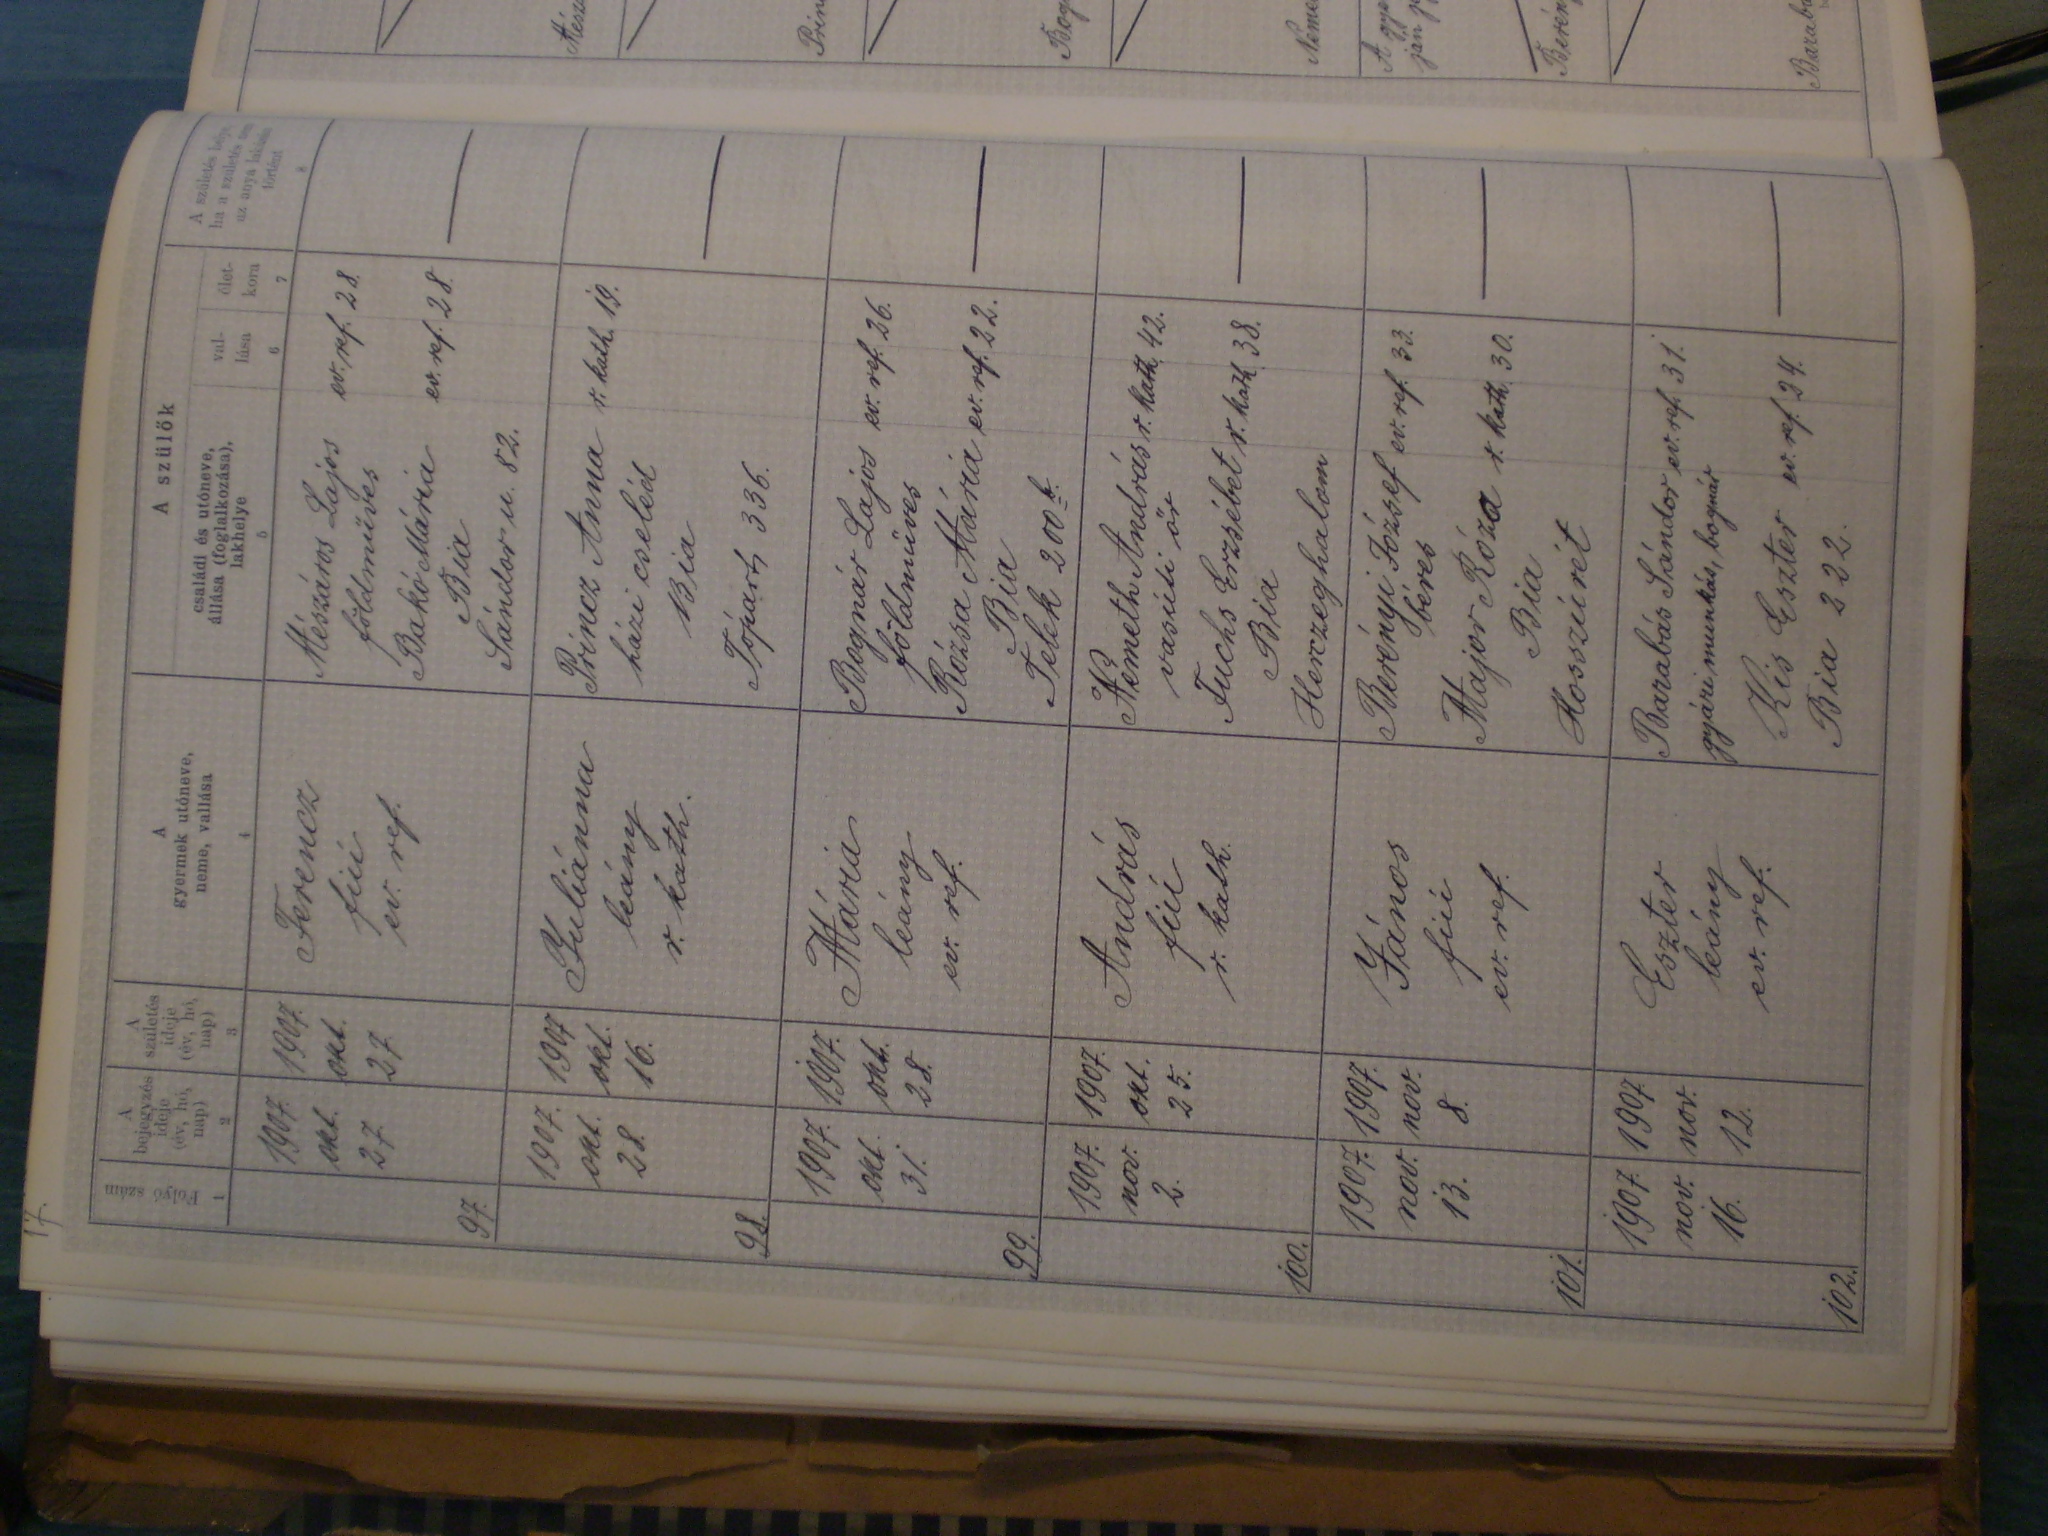 17.
Folyó szám
1
A
bejegyzés
ideje
(év, hó,
nap)
2
A
születés
ideje
(év, hó,
nap)
3
A
gyermek utóneve,
neme, vallása
4
A szülők
családi és utóneve,
állása (foglalkozása),
lakhelye
5
val-
lása
6
élet-
kora
7
A születés helye,
ha a születés nem
az anya lakásán
történt
8
97.
1907.
okt.
27.
1907.
okt.
27.
Ferencz
fiú
ev. ref.
Mészáros Lajos ev. ref. 28.
földműves
Bakó Mária ev. ref. 28.
Bia
Sándor u. 82.
98.
1907.
okt.
28.
1907
okt.
16.
Juliánna
leány
r. kath.
Princz Anna r. kath. 19.
házi cseléd
Bia
Tópart, 336.
99.
1907.
okt.
31.
1907.
okt.
28.
Mária
leány
ev. ref.
Bognár Lajos ev. ref. 26.
földműves
Rózsa Mária ev. ref. 22.
Bia
Telek 200
100.
1907.
nov.
2.
1907.
okt.
25.
András
fiú
r. kath.
Németh András r. kath. 42.
vasúti őr
Fuchs Erzsébet r. kath. 38.
Bia
Herczeghalom
101.
1907.
nov.
13.
1907.
nov.
8.
János
fiú
ev. ref.
Berényi József ev. ref. 33.
béres
Major Róza r. kath. 30.
Bia
Hosszúrét
102.
1907.
nov.
16.
1907.
nov.
12.
Eszter
leány
ev. ref.
Barabás Sándor ev. ref. 31.
gyári munkás, bognár
Kis Eszter ev. ref. 24.
Bia 222.